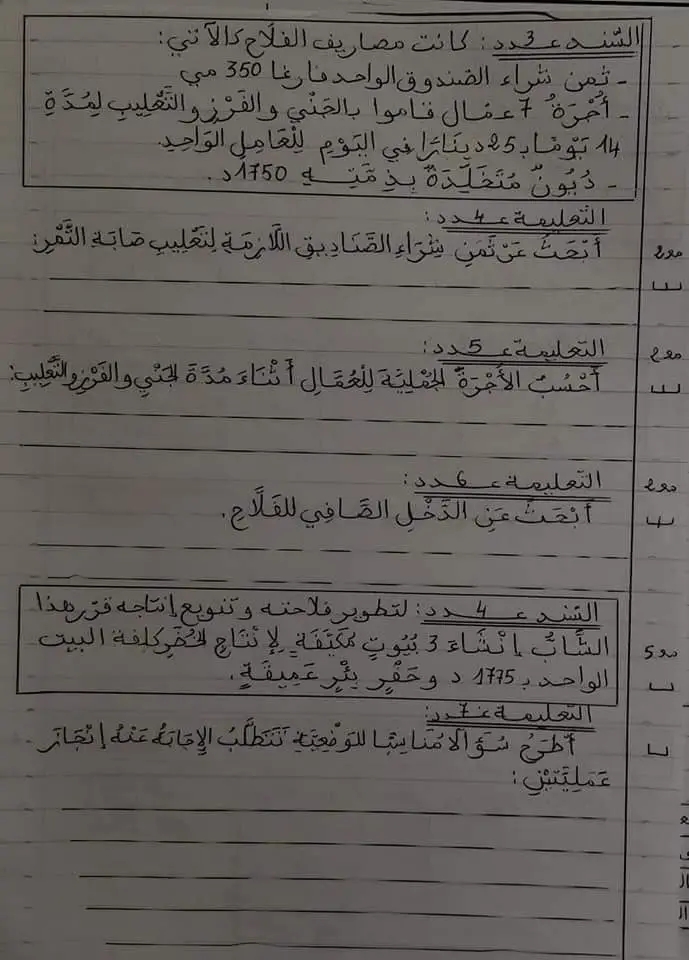 السّند عـ3ـدد: كانت مصاريف الفلاح كالآتي:
- ثمن شراء الصندوق الواحد فارغا 350 مي
- أُجْرَةُ 7 عمّال قاموا بالجَنْي والفَرْزِ والتَّعْلِيبِ لِمُدَّةِ
14 يَوْمًا بـ 25 دينَارًا في اليَوْمِ لِلْعَامِلِ الوَاحِدِ.
- دُيُونٌ مُتَخَلِّدَةٌ بِذِمَّتِـــهِ 1750د.
التعليمة عـ4ـدد:
أَبْحَثُ عَنْ ثَمَنِ شِرَاءِ الصَّنَادِيقِ اللَّازِمَةِ لِتَعْلِيبِ صَابَةِ التَّمْرِ:
مع2
التعليمة عـ5ـدد:
أَحْسُبُ الأُجْرَةَ الجُمْلِيَّةَ لِلْعُمَّالِ أَثْنَاءَ مُدَّةِ الجَنْيِ والفَرْزِ والتَّعْلِيبِ:
مع2
التعليمة عـ6ـدد:
أَبْحَثُ عَنِ الدَّخْلِ الصَّافِي للفَلَّاحِ.
مع2
السّند عـ4ـدد: لتطوير فلاحته وتنويع إنتاجه قرّر هذا
الشَّابُّ إنْشَاءَ 3 بُيُوتٍ مُكَيَّفَةٍ لِإنْتَاجِ الخُضَرِ كلفة البيت
الواحد بـ 1775 د وحَفْرِ بِئْرٍ عَمِيقَةٍ.
مع5
التعليمة عـ7ـدد:
أَطْرَحُ سُؤَالًا مُنَاسِبًا للوَضْعِيَّةِ تَتَطَلَّبُ الإِجَابَةُ عَنْهُ إِنْجَازَ
عَمَلِيَّتَيْنِ: